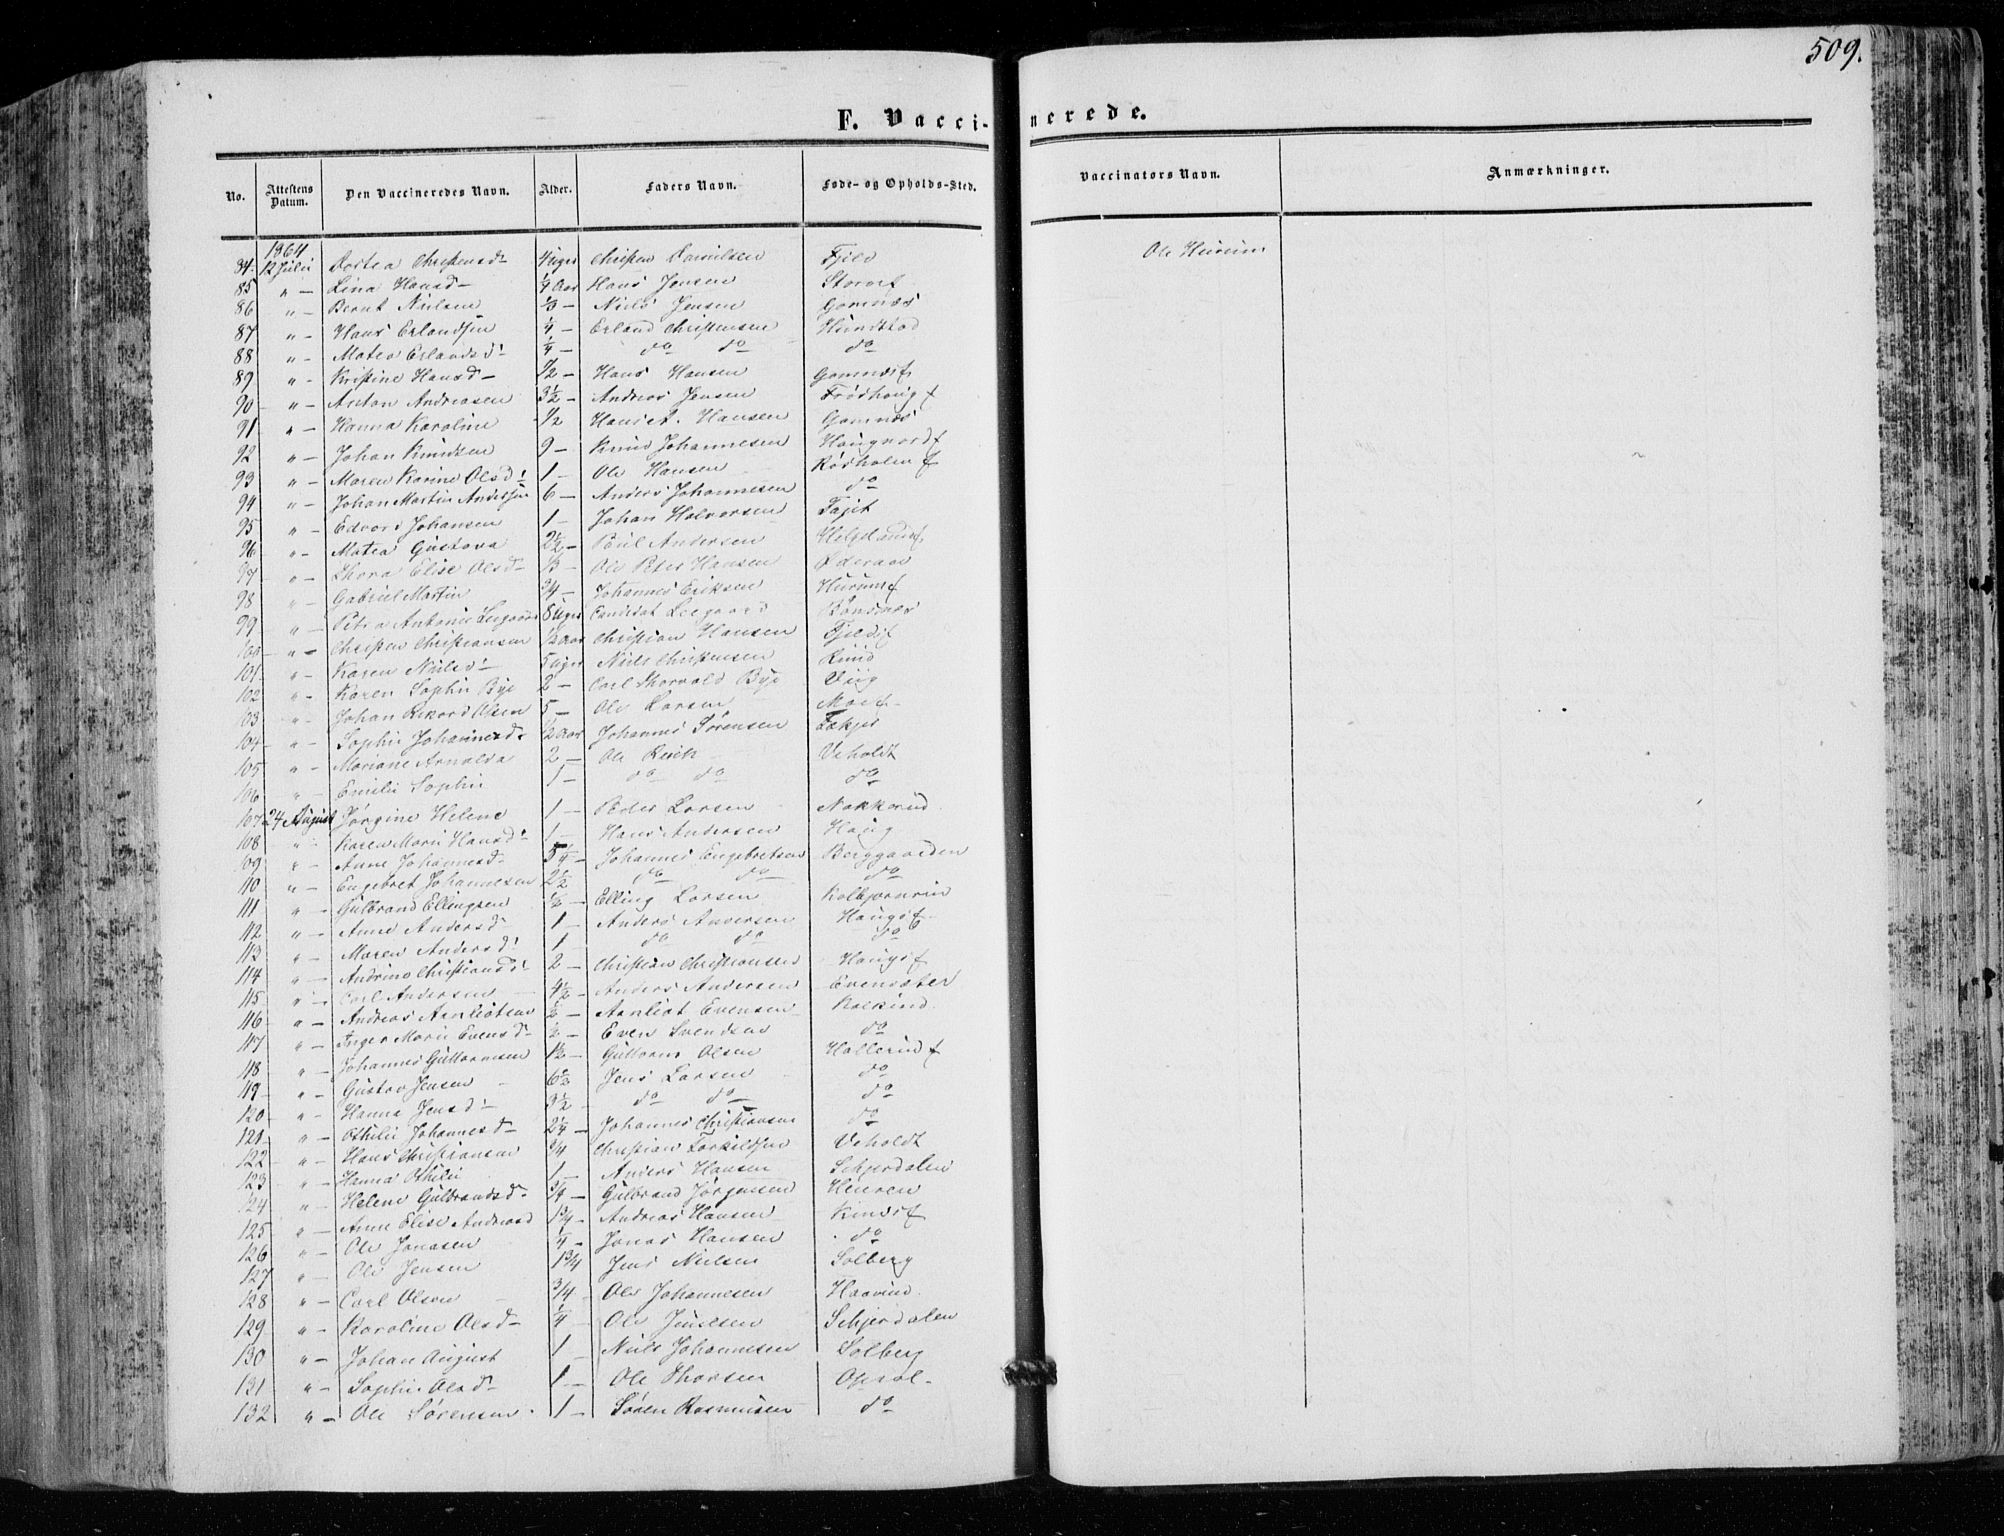 509.
F. Vaccinerede.
No. | Attestens Datum. | Den Vaccineredes Navn. | Alder. | Faders Navn. | Føde- og Opholds-Sted. | Vaccinators Navn. | Anmærkninger.
1864
84. 12 Julii Dortea Christensd- 4 Uger Christen Fjeld Ole Hurum
85 " — Lina Hansd- 1/4 Aar Hans Jensen
86 " — Bernt Nielsen 1/3 — Niels Jensen Gomnæs
87 " - Hans Erlandsen 1/4 — Erland Christensen Hundstad
88 " - Matea Erlandsd- 1/4 — do do do
89 " - Kristine Hansd- 1/2 — Hans Hansen Gomnæsf
90 " — Anton Andreasen 3½ — Andreas Jensen Frøshougf
91 " — Hanna Karoline 1/2 Hansen Gomnæs
92 " - Johan Knudsen 9 — Knud Johannesen
93 " - Maren Karine Olsd- 1 — Ole Hansen Rødholenf
94 " - Johan Martin Andersen 6 — Anders Johannesen do
95 " - Edvard Johansen 1 — Johan Halvorsen
96 " - Matea Gustava 2½ — Paul Andersen
97 " - Thora Elise Olsd- 1/3 — Ole Peter Hansen Øderaae
98 " - Gabriel Martin 3/4 — Johannes Eriksen Hurumf
99 " - Petra Antonie 8 Uger Candidat Bønsnæs
100 " — Christen Christiansen 1/2 Aar Christian Hansen Fjeldf
101 " — Karen Nielsd- 5 Uger Niels Christensen Ruud
102 " - Karen Sophie Bye 2 — Carl Thorvald Bye Viig
103 " - Johan Rikard Olsen 5 — Ole Larsen Moef
104 " - Sophie Johannesd- 1/2 Aar Johannes Sørensen
105 " — Mariane Arnalda 2 — Ole Veholdt
106 " — Emilie Sophie 1 — do do do
107 24 August Jørgine Helene 1 — Peder Larsen Nakkerud.
108 " Karen Marie Hansd- 1 — Hans Andersen Houg
109 " - Anne Johannesd- 5¼ — Johannes Engebretsen Berggaarden
110 " - Engebret Johannesen 2½ do do do
111 " - Gulbrand Ellingsen 1/2 — Elling Larsen
112 " — Anne Andersd- 1 — Anders Andersen Hougsf
113 " - Maren Andersd- 1 — do do do
114 " - Andrine Christiansd- 2 — Christian Christiansen Hougsf
115 " - Carl Andersen 4½ — Anders Andersen Evensæter
116 " - Andreas Aanliotsen 1/2 — Aanliot Evensen
117 " — Inger Marie Evensd- 1/2 — Even Svendsen do
118 " - Johannes Guttormsen 1½ — Guttorm Olsen Hallerudf
119 " - Gustav Jensen 6½ Jens Larsen do
120 " - Hanna Jensd- 3½ — do do do
121 " - Othilie Johannesd- 2¼ — Johannes Christiansen do
122 " - Hans Christiansen 3/4 Christian Torkildsen Veholdt
123 " - Hanna Othilie 1 — Anders Hansen Schjerdalen
124 " - Helene Gulbrandsd- 3/4 — Gulbrand Jørgensen Heuren
125 " - Anne Elise Andreasd 1¾ — Andreas Hansen
126 " - Ole Jonasen 1/4 — Jonas Hansen do
127 " - Ole Jensen 1¾ Jens Nielsen Solberg
128 " - Carl Olsen 3/4 — Ole Johannesen Haavind.
129 " - Karoline Olsd- 1/4 — Ole Schjerdalen
130 " — Johan August 1 — Niels Johannesen Solberg
131 " — Sophie Olsd- 1 — Ole Thorsen Opsal-
132 " — Ole Sørensen 1 — Søren Rasmussen do